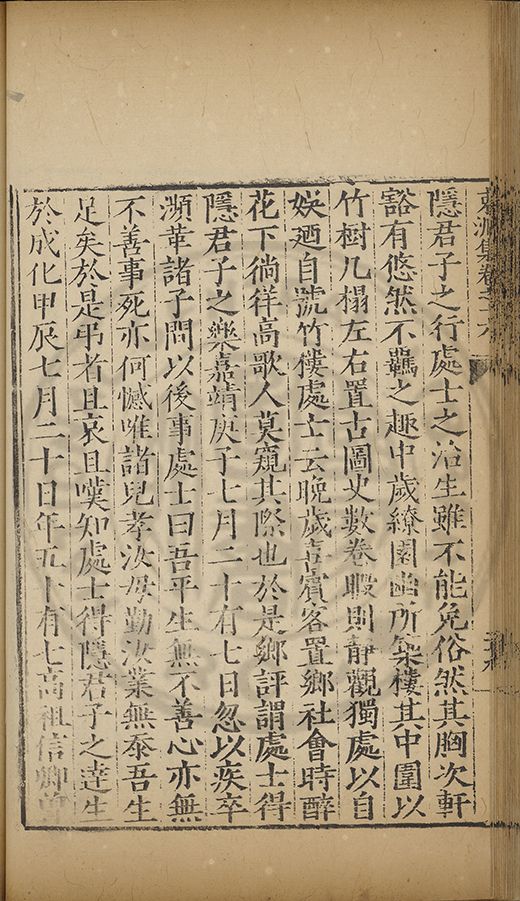 東洲集卷之二
隱君子之行處士之治生雖不能免俗然其胸次軒
豁有悠然不羈之趣中歲繚園幽所築樓其中圍以
竹樹几榻左右置古圖史數卷暇則靜觀獨處以自
娛廼自號竹樓處士云晚歲喜賓客置鄉社會時醉
花下徜徉高歌人莫窺其際也於是鄉評謂處士得
隱君子之樂嘉靖庚子七月二十有七日忽以疾卒
瀕革諸子問以後事處士曰吾平生無不善心亦無
不善事死亦何憾唯諸兒孝汝母勤汝業無忝吾生
足矣於是弔者且哀且嘆知處士得隱君子之達生
於成化甲辰七月二十日年五十有七高祖信卿